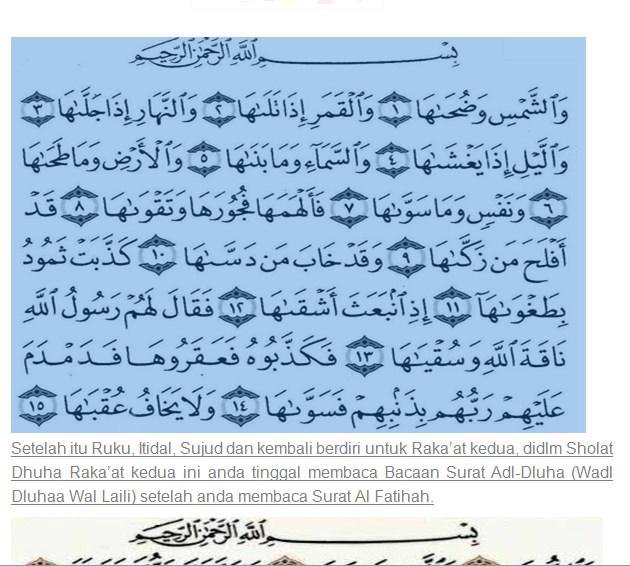 بِسْــــــمِ ٱللَّهِ ٱلرَّحْمَٰنِ ٱلرَّحِيمِ
وَٱلشَّمْسِ وَضُحَىٰهَا ١ وَٱلْقَمَرِ إِذَا تَلَىٰهَا ٢ وَٱلنَّهَارِ إِذَا جَلَّىٰهَا ٣
وَٱلَّيْلِ إِذَا يَغْشَىٰهَا ٤ وَٱلسَّمَآءِ وَمَا بَنَىٰهَا ٥ وَٱلْأَرْضِ وَمَا طَحَىٰهَا
٦ وَنَفْسٍ وَمَا سَوَّىٰهَا ٧ فَأَلْهَمَهَا فُجُورَهَا وَتَقْوَىٰهَا ٨ قَدْ
أَفْلَحَ مَن زَكَّىٰهَا ٩ وَقَدْ خَابَ مَن دَسَّىٰهَا ١٠ كَذَّبَتْ ثَمُودُ
بِطَغْوَىٰهَآ ١١ إِذِ ٱنۢبَعَثَ أَشْقَىٰهَا ١٢ فَقَالَ لَهُمْ رَسُولُ ٱللَّهِ
نَاقَةَ ٱللَّهِ وَسُقْيَٰهَا ١٣ فَكَذَّبُوهُ فَعَقَرُوهَا فَدَمْدَمَ
عَلَيْهِمْ رَبُّهُم بِذَنۢبِهِمْ فَسَوَّىٰهَا ١٤ وَلَا يَخَافُ عُقْبَٰهَا ١٥
Setelah itu Ruku, Itidal, Sujud dan kembali berdiri untuk Raka’at kedua, didlm Sholat
Dhuha Raka’at kedua ini anda tinggal membaca Bacaan Surat Adl-Dluha (Wadl
Dluhaa Wal Laili) setelah anda membaca Surat Al Fatihah.
بِسْــــــمِ ٱللَّهِ ٱلرَّحْمَٰنِ ٱلرَّحِيمِ